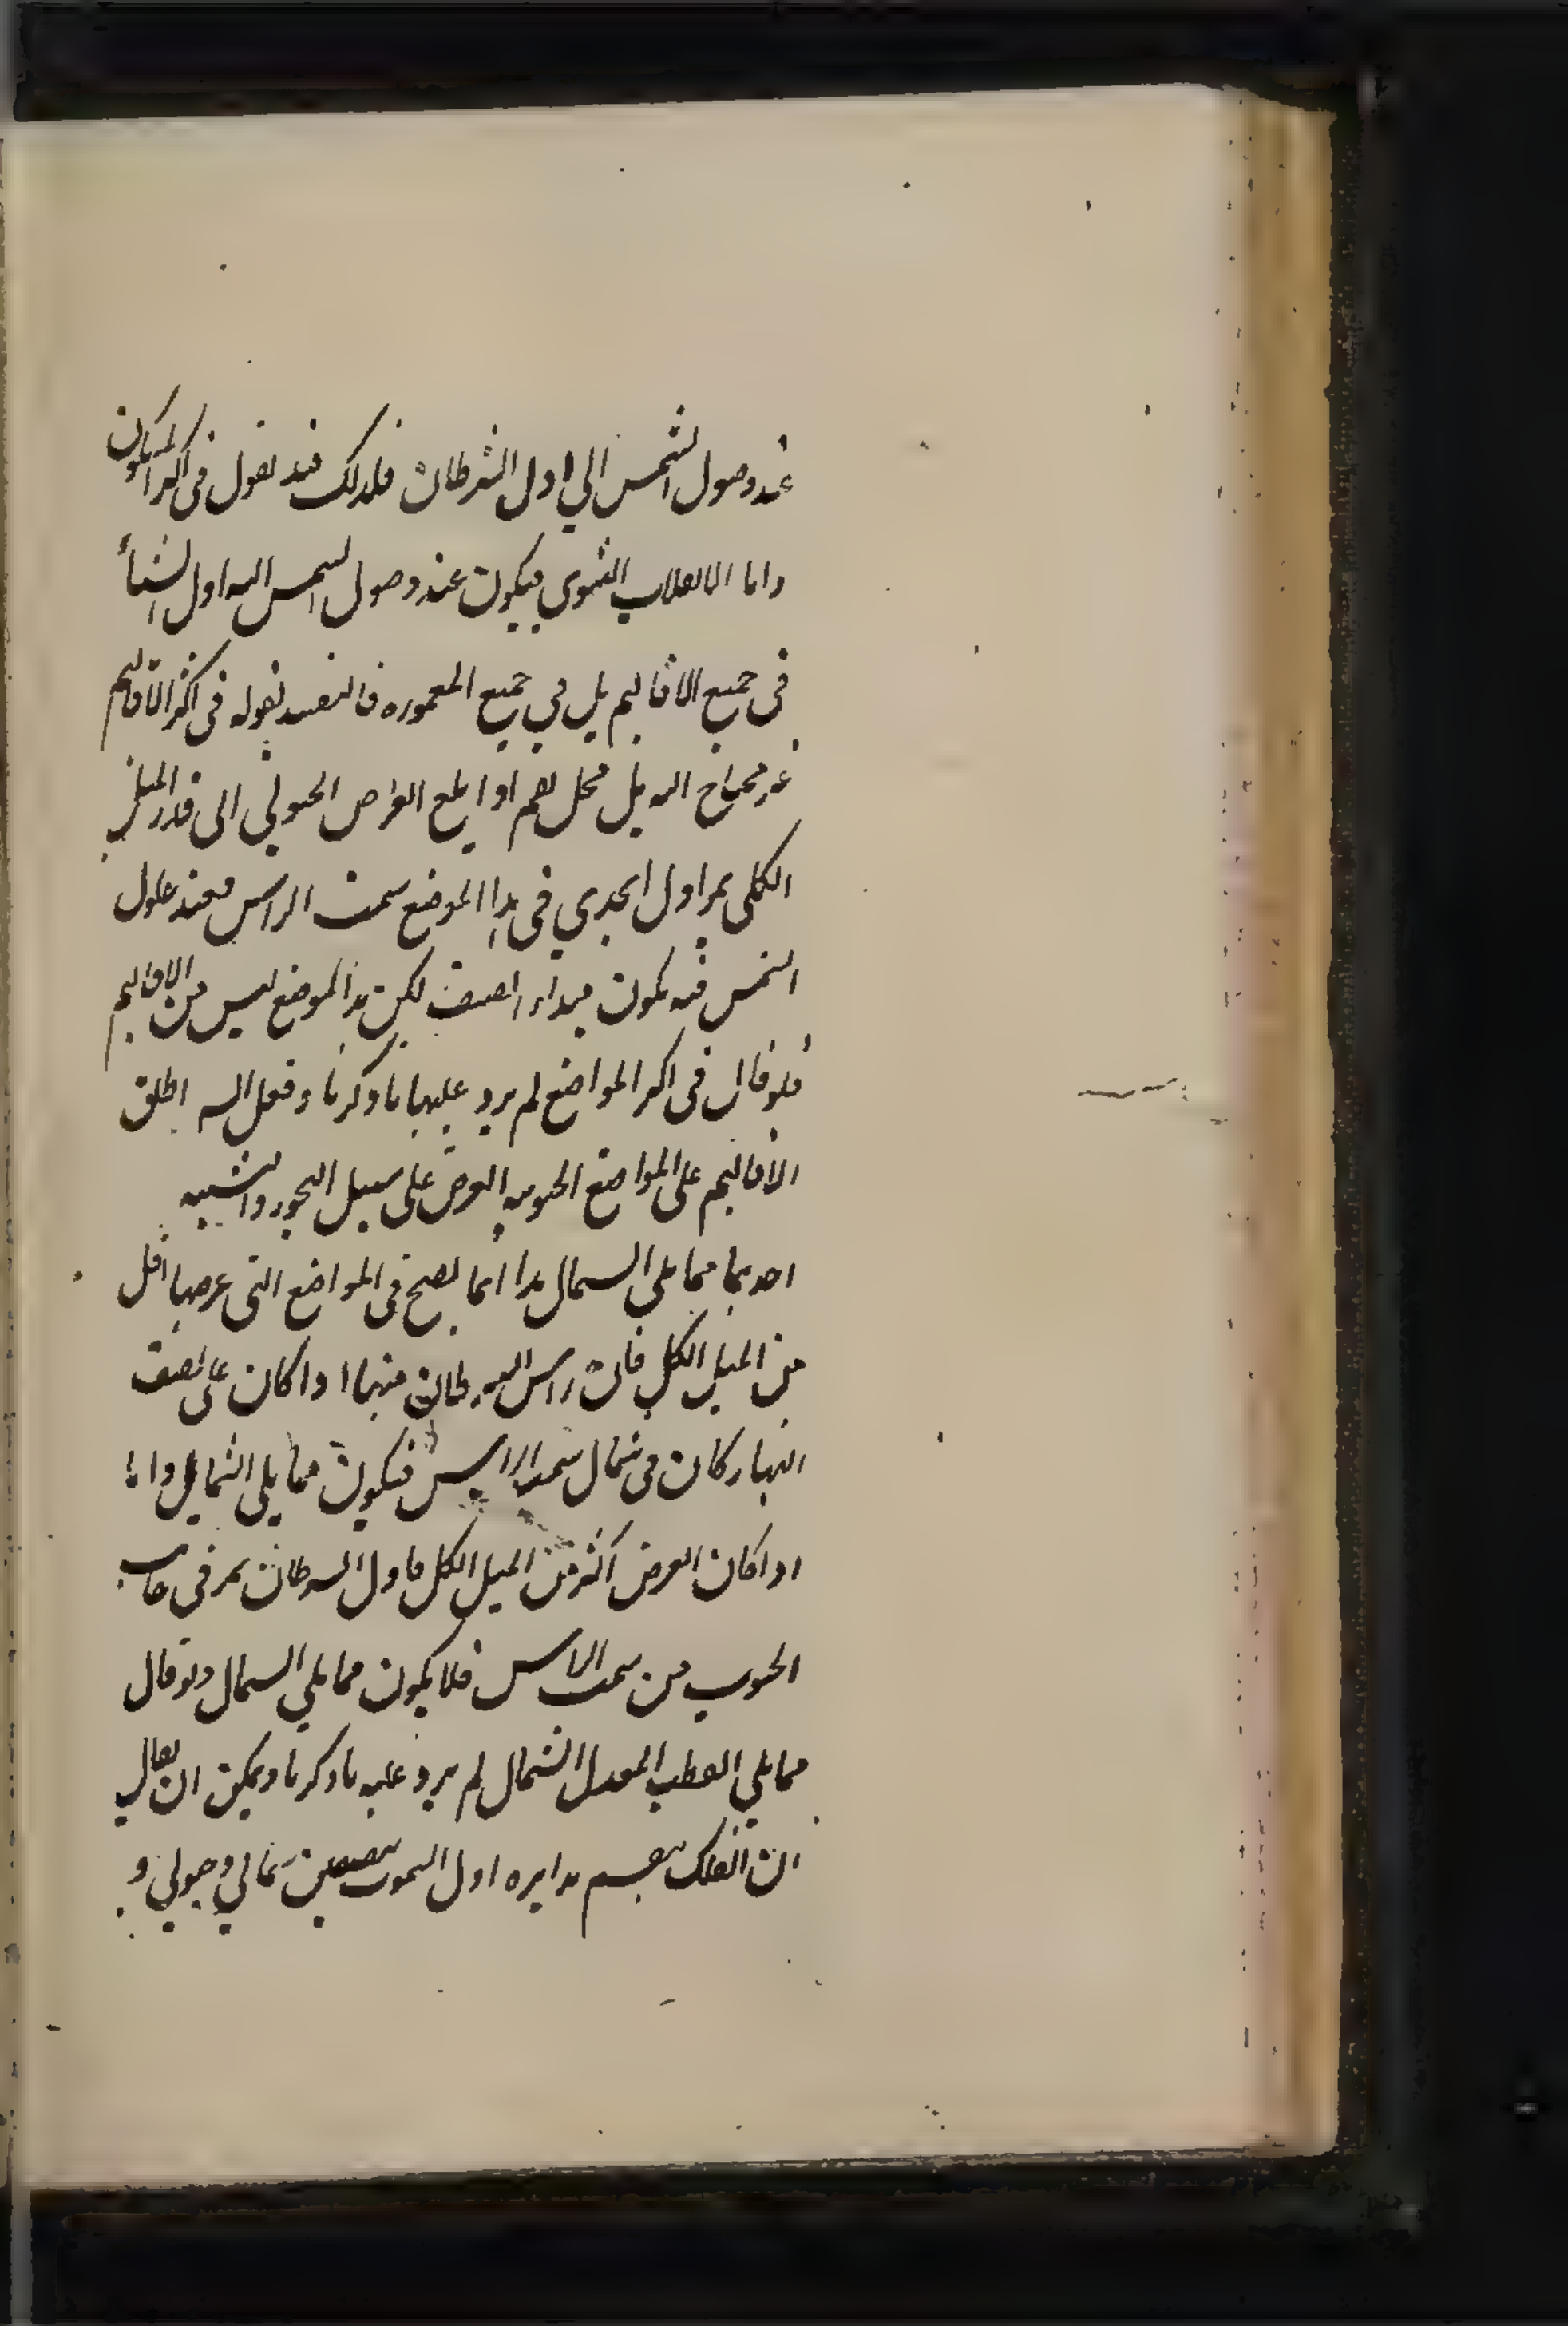 عند وصول الشمس الي اول السرطان فلذلك قيد بقول في اكثر المسكون
واما الانقلاب الشتوي فيكون عند وصول الشمس اليه اول الشتاء
في جميع الاقاليم بل في جميع المعموره فالتقييد بقوله في اكثر الاقاليم
غير محتاج اليه بل مخل نعم اذا بلغ العرض الجنوبي الى قدر الميل
الكلى يمر اول الجدي في هذا الموضع سمت الراس فعند حلول
الشمس فيه يكون مبداء الصيف لكن هذا الموضع ليس من الاقاليم
فلو قال في اكثر المواضع لم يرد عليها ما ذكرنا و اطلق
الاقاليم على المواضع الجنوبيه العرض على سبيل التجوز والتشبيه
احديهما مما يلي الشمال هذا انما يصح في المواضع التي عرضها اقل
من الميل الكلي فان راس السرطان منهما اذا كان على نصف
النهار كان في شمال سمت الراس فيكون مما يلي الشمال واما
اذا كان العرض اكثر من الميل الكلي فاول السرطان يمر في جانب
الجنوب من سمت الراس فلا يكون مما يلي الشمال ولو قال
مما يلي القطب المعدل الشمال لم يرد عليه ما ذكرنا ويمكن ان يقال
ان الفلك ينقسم بدايره اول السموت بنصفين شمالي وجنوبي و